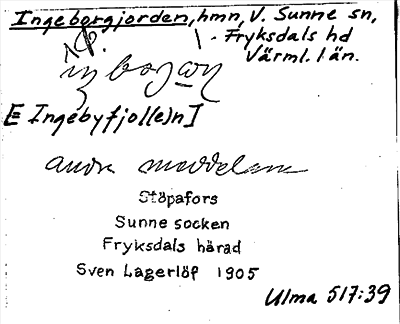 Ingeborgjorden, hmn, V. Sunne sn,
Fryksdals hd
Värml. län.
[= Ingebyfjol(e)n]
andra meddelare
Stöpafors
Sunne socken
Fryksdals härad
Sven Lagerlöf 1905
Ulma 517:39